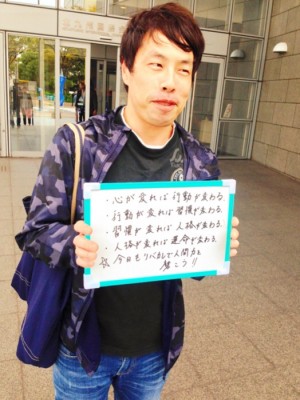 ・心が変れば行動が変わる。
・行動が変れば習慣が変わる。
・習慣が変れば人格が変わる。
・人格が変れば運命が変わる。
☆今日もリベカルで人間力を
磨こう!!